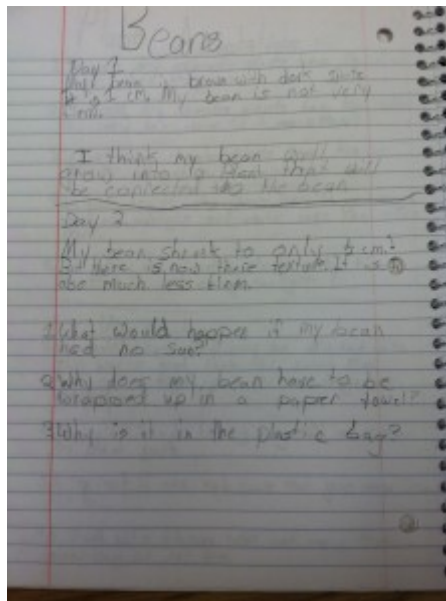 Beans
Day 1
My bean is brown with dark
It is 1 cm. My bean is not very
I think my bean will
grow into a plant that will
be connected to the bean
Day 2
My bean shrunk to only cm.
But there is now more texture. It is
also much less
1. What would happen if my bean
had no sun?
2. Why does my bean have to be
wrapped up in a paper towel?
3. Why is it in the plastic bag?